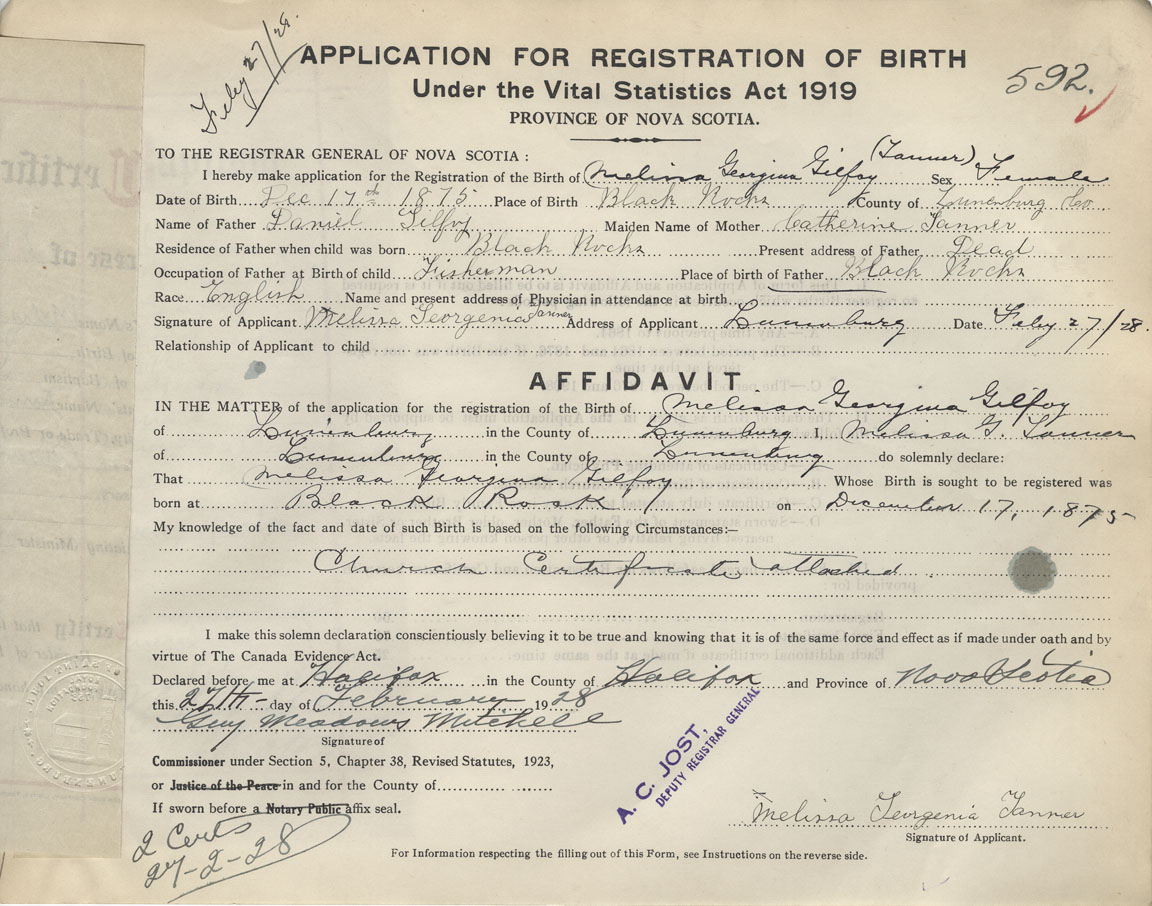 Feby 27/28.
APPLICATION FOR REGISTRATION OF BIRTH
592.
Under the Vital Statistics Act 1919
PROVINCE OF NOVA SCOTIA.
TO THE REGISTRAR GENERAL OF NOVA SCOTIA :
(Tanner)
I hereby make application for the Registration of the Birth of Melissa Georgina Gilfoy Sex Female
Date of Birth Dec 17th 1875 Place of Birth Black Rocks County of Lunenburg Co
Name of Father Daniel Gilfoy Maiden Name of Mother Catherine Tanner
Residence of Father when child was born Black Rocks Present address of Father Dead
Occupation of Father at Birth of child Fisherman Place of birth of Father Black Rocks
Race English Name and present address of Physician in attendance at birth
Signature of Applicant Melissa Georgenia Tanner Address of Applicant Lunenburg Date Feby 27/28.
Relationship of Applicant to child
AFFIDAVIT
IN THE MATTER of the application for the registration of the Birth of Melissa Georgina Gilfoy
of Lunenburg in the County of Lunenburg I, Melissa G. Tanner
of Lunenburg in the County of Lunenburg do solemnly declare:
That Melissa Georgina Gilfoy Whose Birth is sought to be registered was
born at Black Rock on December 17, 1875
My knowledge of the fact and date of such Birth is based on the following Circumstances:—
Church Certificate attached
I make this solemn declaration conscientiously believing it to be true and knowing that it is of the same force and effect as if made under oath and by
virtue of The Canada Evidence Act.
Declared before me at Halifax in the County of Halifax and Province of Nova Scotia
this 27th day of February 1928
Guy Meadows Mitchell
Signature of
Commissioner under Section 5, Chapter 38, Revised Statutes, 1923,
or Justice of the Peace in and for the County of
If sworn before a Notary Public affix seal.
A. C. JOST,
DEPUTY REGISTRAR GENERAL
Melissa Georgenia Tanner
Signature of Applicant.
2 Certs
27-2-28
For Information respecting the filling out of this Form, see Instructions on the reverse side.